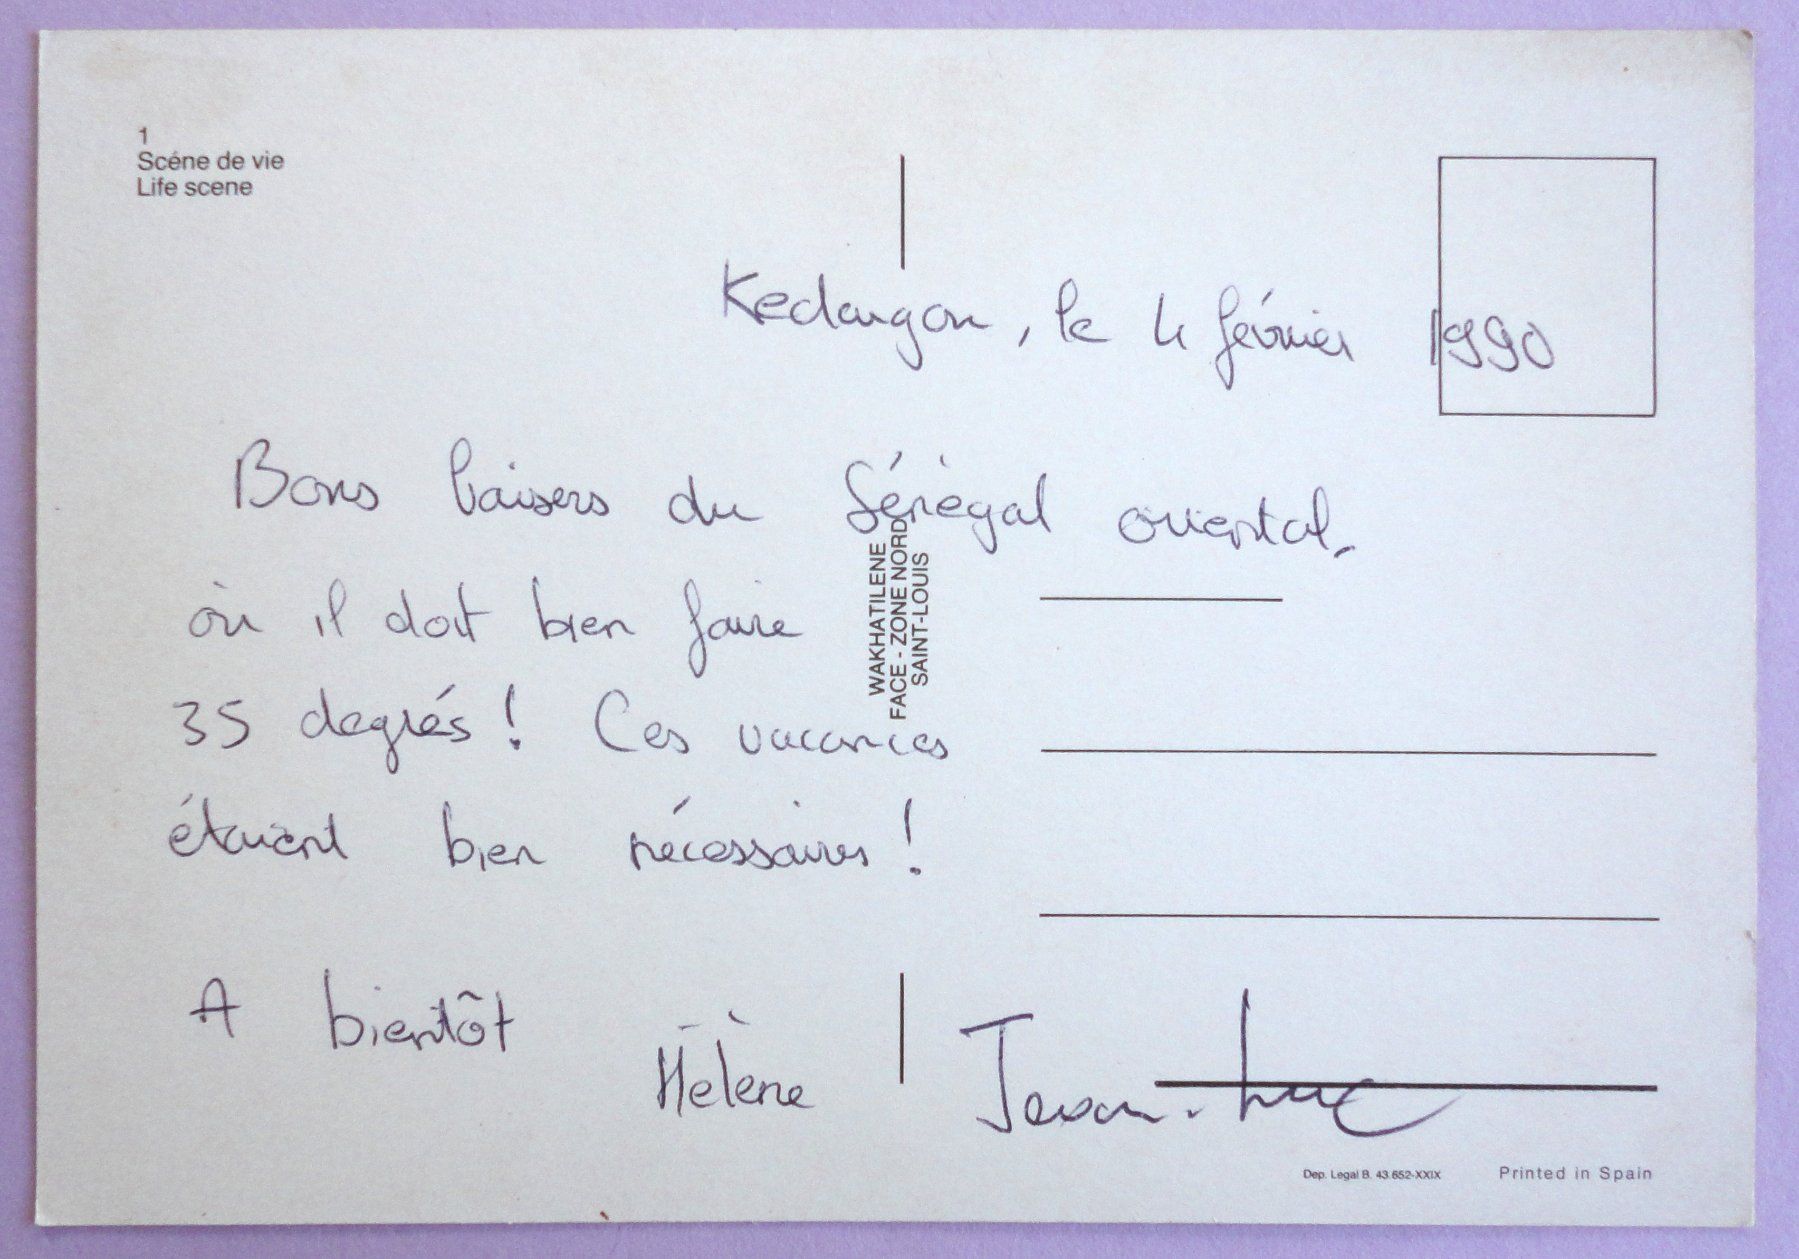 1
Scéne de vie
Life scene
Kedougou, le 4 février 1990
Bons baisers du Sénégal oriental,
où il doit bien faire
35 degrés ! Ces vacances
étaient bien nécessaires !
A bientôt
Hélène Jean-Luc
WAKHATILENE
FACE - ZONE NORD
SAINT-LOUIS
Dep. Legal B. 43.652-XXIX Printed in Spain